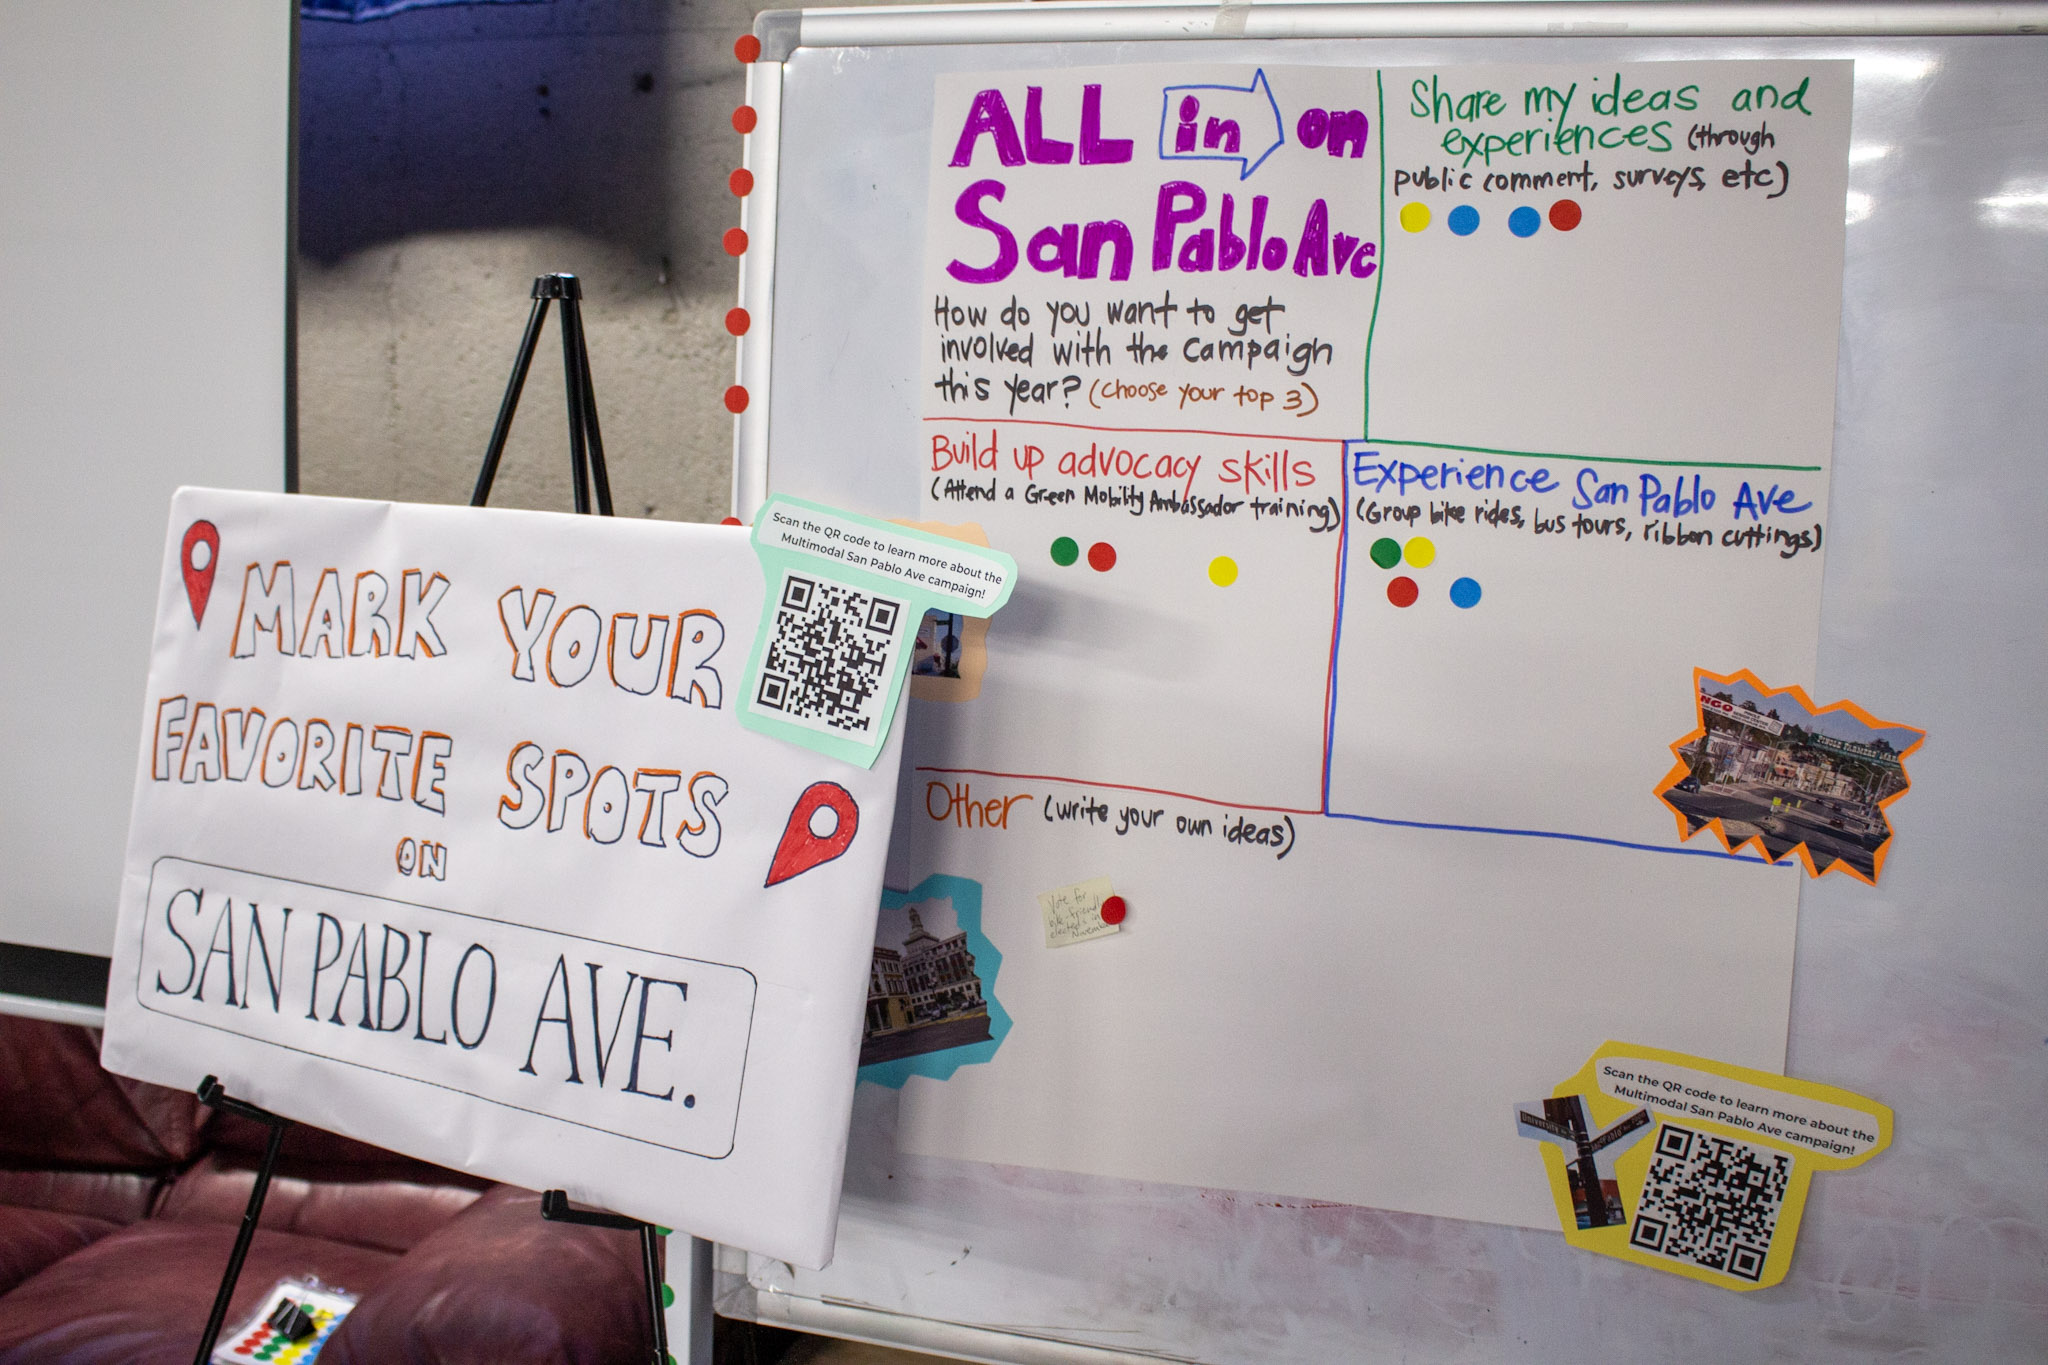 MARK YOUR
FAVORITE SPOTS
ON
SAN PABLO AVE.
Scan the QR code to learn more about the
Multimodal San Pablo Ave campaign!
ALL in on
San Pablo Ave
How do you want to get
involved with the campaign
this year? (choose your top 3)
Share my ideas and
experiences (through
public comment, surveys, etc)
Build up advocacy skills
(Attend a Green Mobility Ambassador training)
Experience San Pablo Ave
(Group bike rides, bus tours, ribbon cuttings)
Other (write your own ideas)
Vote for
bike-friendly
electeds in
November
NGO
PINOLE FARMERS
Scan the QR code to learn more about the
Multimodal San Pablo Ave campaign!
University
San Pablo